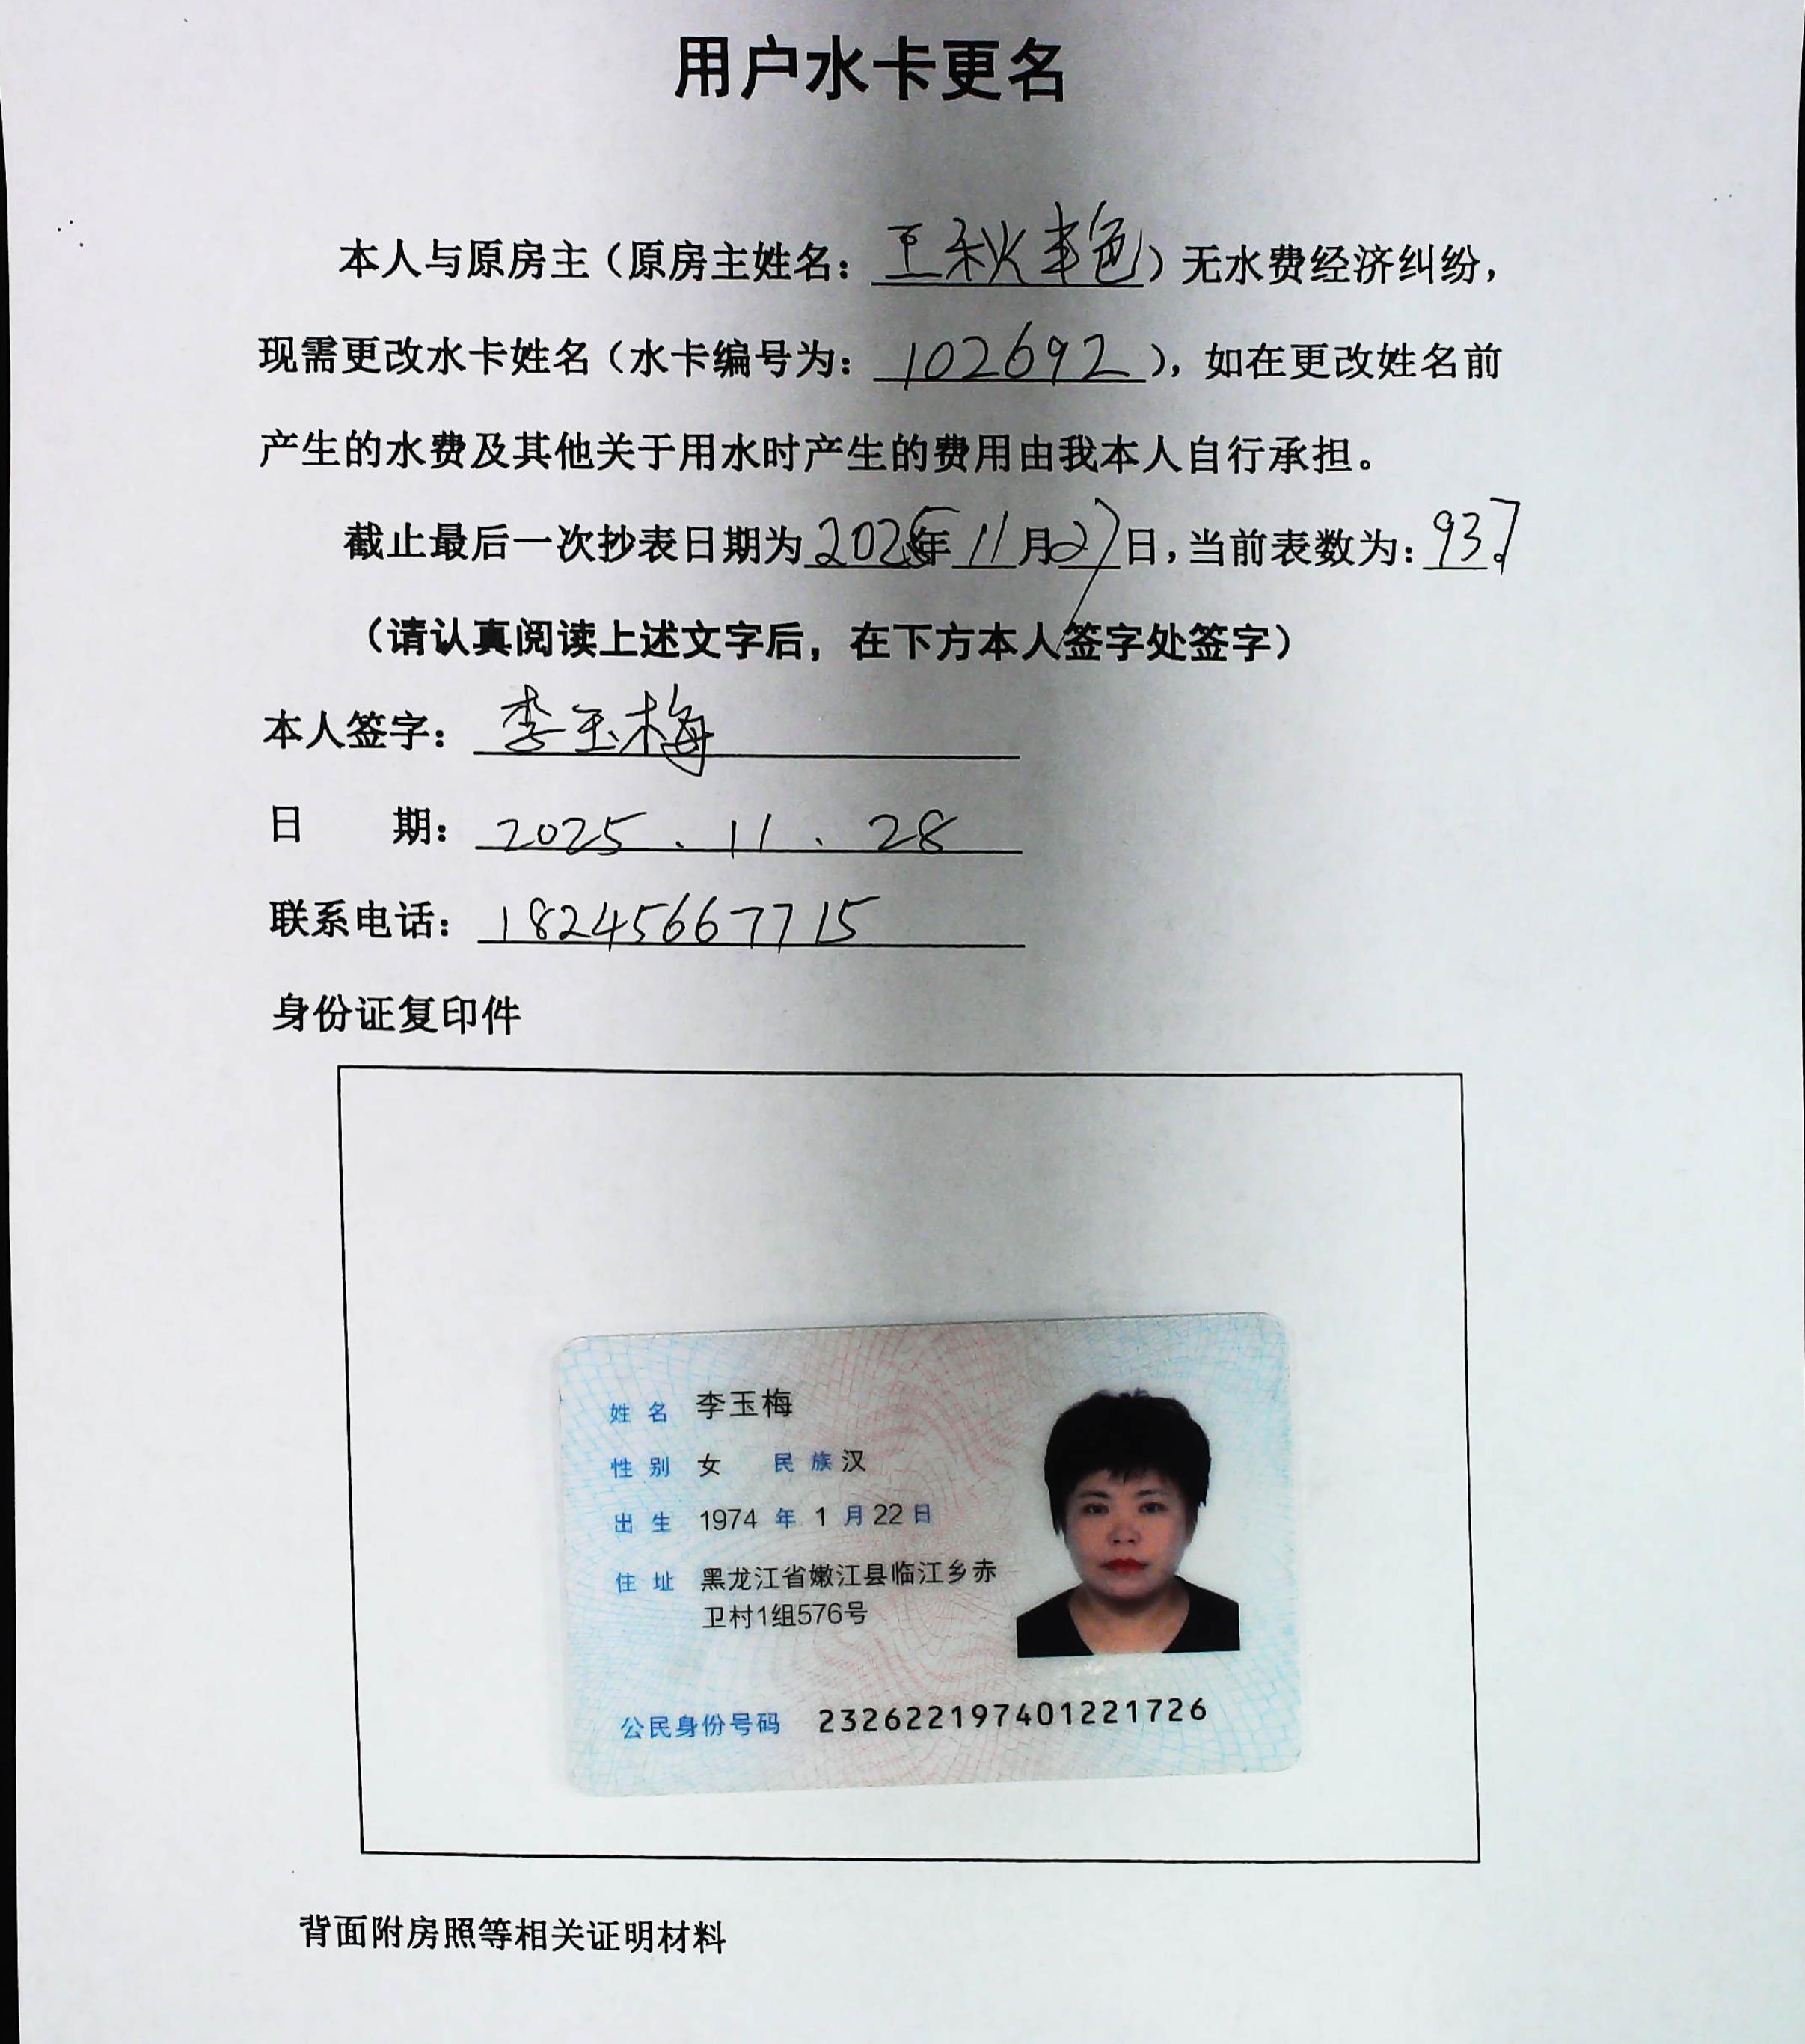 用户水卡更名
本人与原房主（原房主姓名：王秋艳）无水费经济纠纷，
现需更改水卡姓名（水卡编号为：102692），如在更改姓名前
产生的水费及其他关于用水时产生的费用由我本人自行承担。
截止最后一次抄表日期为2025年11月27日，当前表数为：937
（请认真阅读上述文字后，在下方本人签字处签字）
本人签字：李玉梅
日 期：2025.11.28
联系电话：18245667715
身份证复印件
姓名 李玉梅
性别 女 民族 汉
出生 1974年1月22日
住址 黑龙江省嫩江县临江乡赤
卫村1组576号
公民身份号码 232622197401221726
背面附房照等相关证明材料